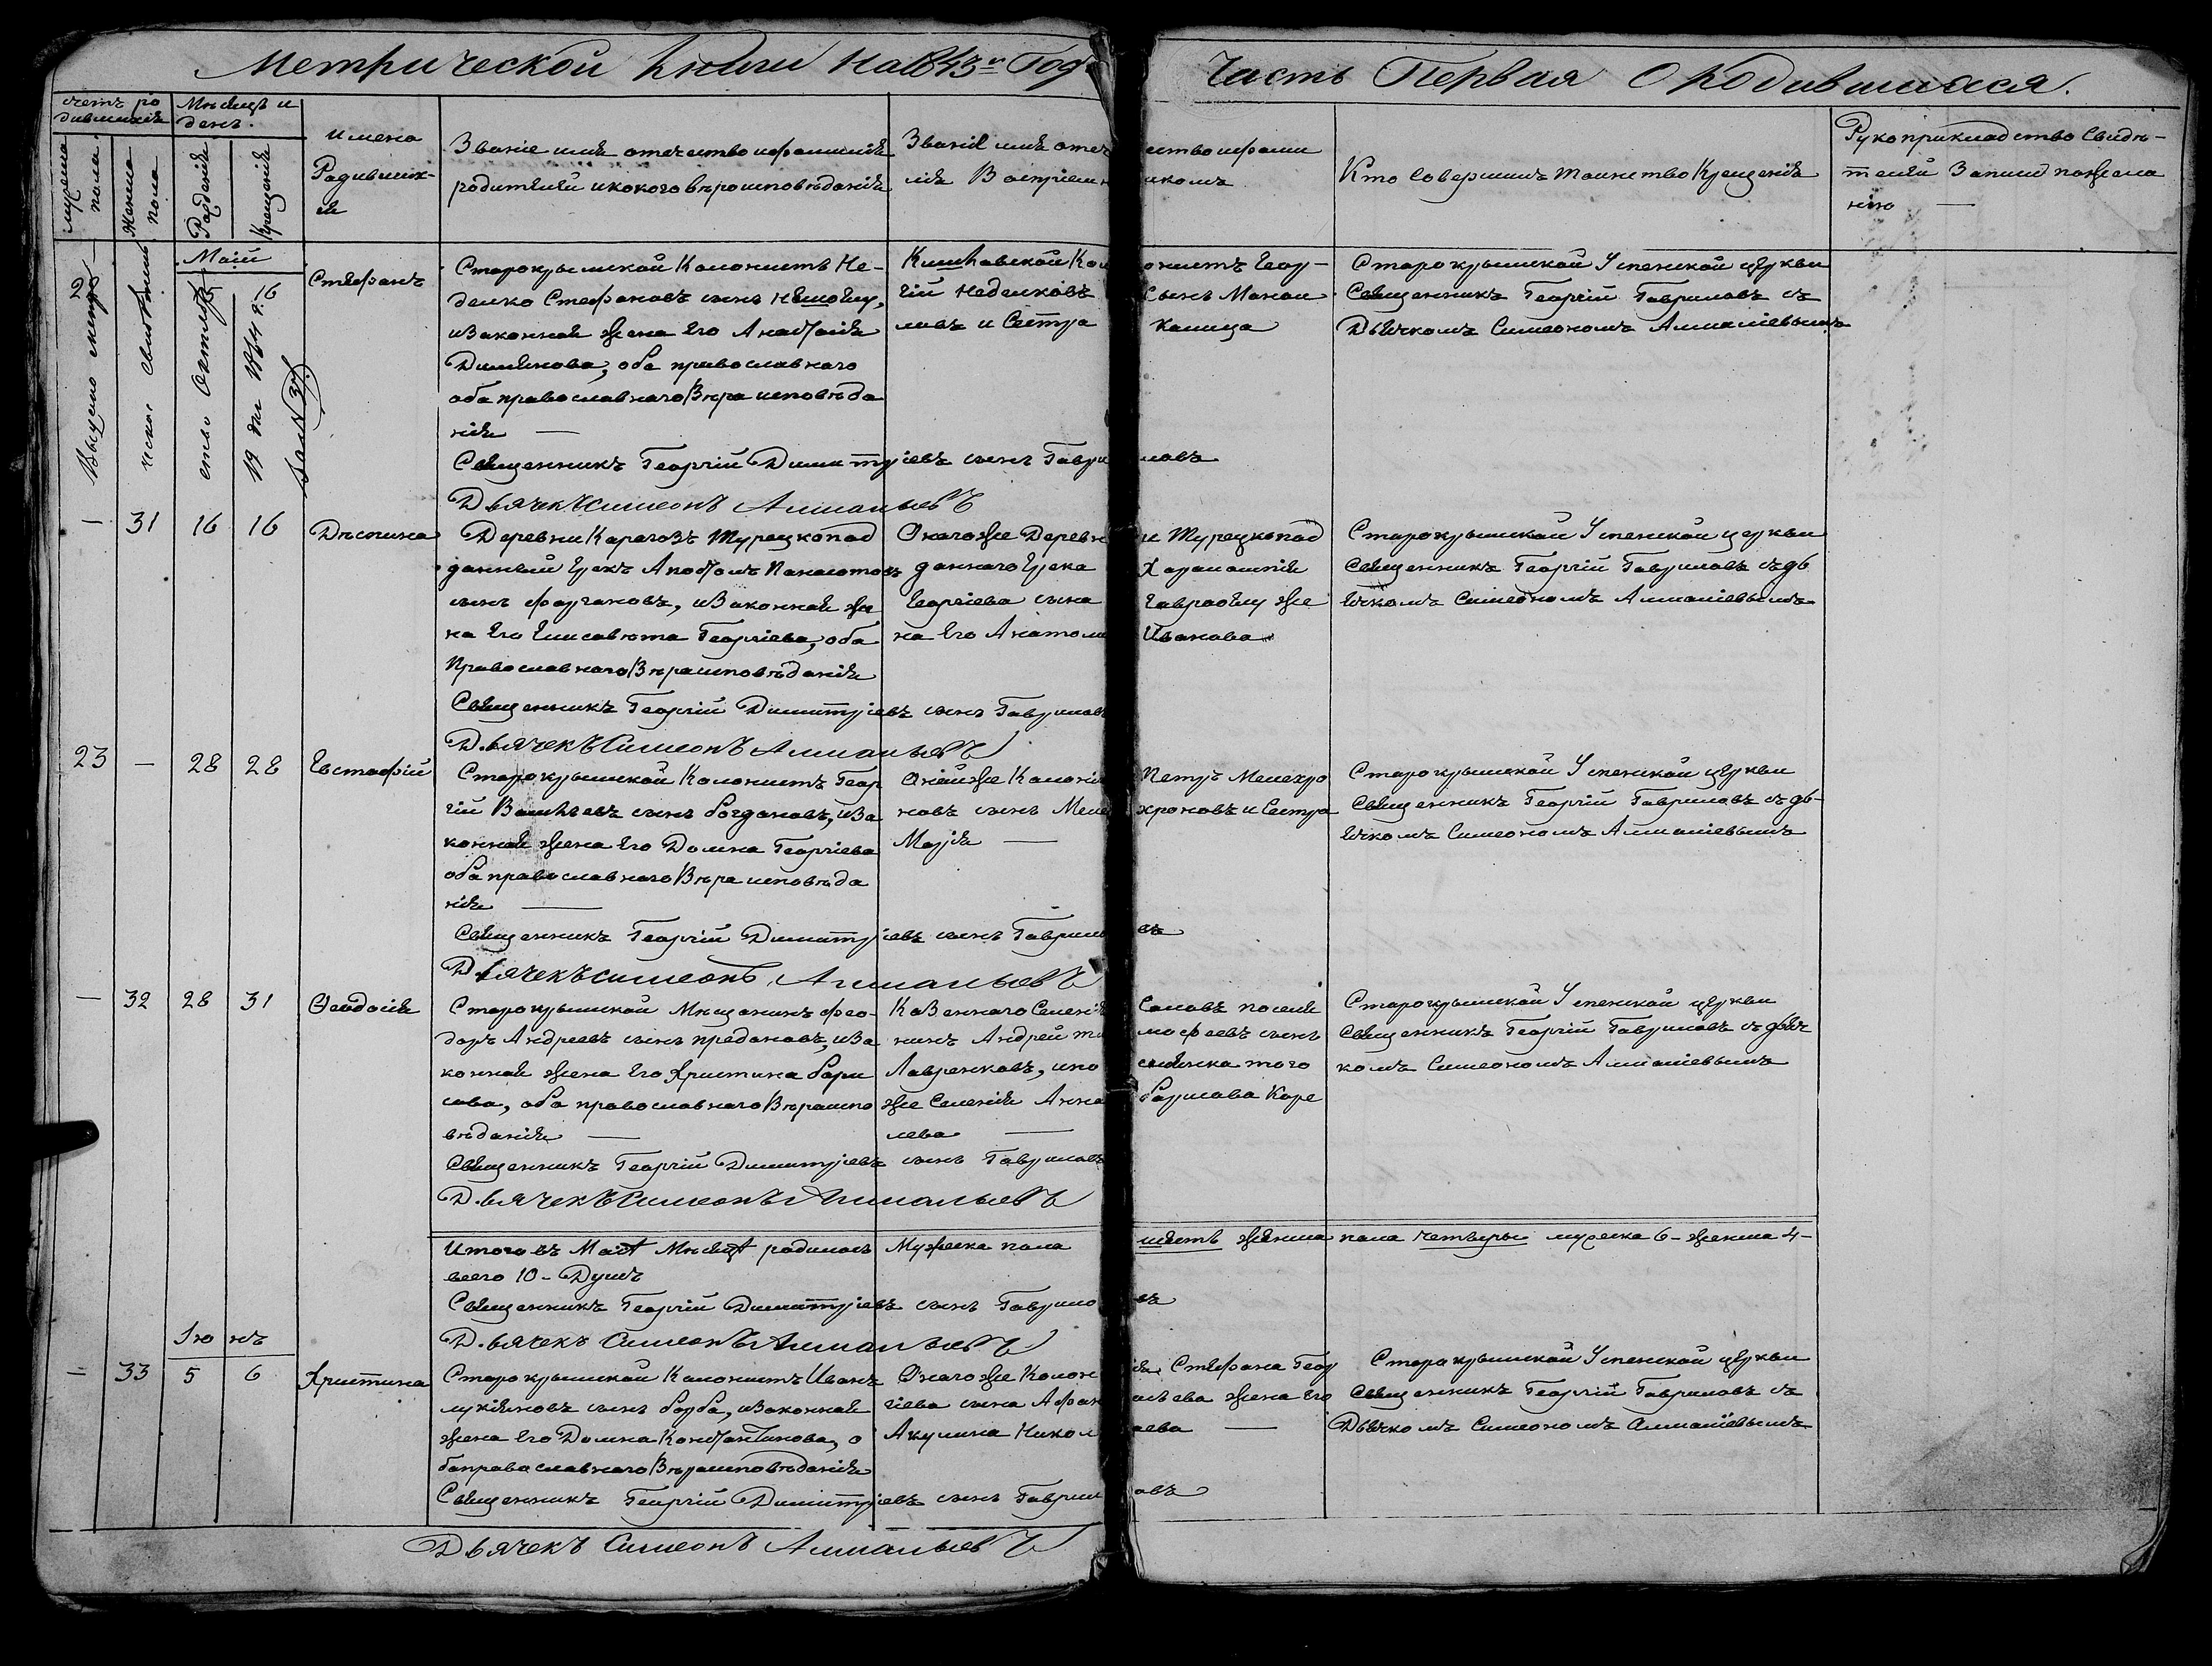 Метрической Книги на 1843й Годъ Часть Первая О Родившихся.
счетъ ро
дившихся
мужеска
пола
женска
пола
Мѣсяцъ и
день.
Рожденія
Крещенія
Имена
Родивших-
ся
Званіе имя отечество и фамилія
родителей и какого вѣроисповѣданія
Званіе имя отечество и фами
лія Воспріемниковъ
Кто Совершилъ Таинство Крещенія
Рукоприкладство Свидѣ-
телей Записи по желанію
нію —
Маій
16
Выдано метри
ческое свидѣтель
ство Октября
19 дня 1864 г.
за № 37
Стефанъ
Старокрымской Колонистъ Не-
делко Стефановъ сынъ
и законная жена его Анастасія
Димянова, оба православнаго
оба православнаго Вѣра исповѣда
нія —
Кишлавской Колонистъ Геор-
гій Неделковъ Сынъ Манои
ловъ и Сестра Калица
Старокрымской Успенской церкви
Священникъ Георгій Гавриловъ съ
Дьячкомъ Симеономъ Алманіевымъ
Священникъ Георгій Димитріевъ сынъ Гавриловъ
Дьячекъ Симеонъ Алманьевъ
— 31 16 16 Деспина
Деревни Карагозъ Турецкопод
данный Грекъ Апостолъ Панаіотовъ
сынъ Фасуановъ, и законная же
на Его Елисавета Георгіева, оба
Православнаго Вѣраисповѣданія
Онагоже Деревни Турецкопод
даннаго Грека Харалампія
Георгіева сына же
на Его Анатолія Иванова
Старокрымской Успенской церкви
Священникъ Георгій Гавриловъ съ дь
ячкомъ Симеономъ Алманіевымъ
Священникъ Георгій Димитріевъ сынъ Гавриловъ
Дьячекъ Симеонъ Алманьевъ
23 — 28 28 Евстафій
Старокрымской Колонистъ Геор
гій Васильевъ сынъ Богдановъ, и за
конная жена Его Домна Георгіева
оба православнаго Вѣра исповѣда
нія —
Онойже Колоніи Петръ Мелехро
новъ сынъ Мелехроновъ и Сестра
Марія —
Старокрымской Успенской церкви
Священникъ Георгій Гавриловъ съ дь-
ячкомъ Симеономъ Алманіевымъ
Священникъ Георгій Димитріевъ сынъ Гавриловъ
Дьячекъ Симеонъ Алманьевъ
— 32 28 31 Феодосія
Старокрымской Мѣщанинъ Фео-
доръ Андреевъ сынъ Предановъ, и за
конная жена Его Христина Бори
сова, оба православнаго Вѣраиспо
вѣданія —
Казеннаго Селенія Саловъ поселя
нинъ Андрей Тимофеевъ сынъ
Лавренковъ, и поселянка того
же Селенія Анна Борисова Каре
лева —
Старокрымской Успенской церкви
Священникъ Георгій Гавриловъ съ дьяч
комъ Симеономъ Алманіевымъ
Священникъ Георгій Димитріевъ сынъ Гавриловъ
Дьячекъ Симеонъ Алманьевъ
Итого въ Маіѣ Мѣсяцѣ родилось Мужеска пола шесть женска пола четыры мужска 6 - женска 4 -
всего 10 - Душъ
Священникъ Георгій Димитріевъ сынъ Гавриловъ
Дьячекъ Симеонъ Алманьевъ
Іюнъ
— 33 5 6 Христина
Старокрымской Колонистъ Иванъ
Лукіяновъ сынъ Барба, и законная
жена Его Домна Константинова, о
ба православнаго Вѣраисповѣданія
Онагоже Колоніи Стефана Геор
гіева сына Афанасьева жена Его
Акулина Николаева —
Старокрымской Успенской церкви
Священникъ Георгій Гавриловъ съ
Дьячкомъ Симеономъ Алманіевымъ
Священникъ Георгій Димитріевъ сынъ Гавриловъ
Дьячекъ Симеонъ Алманьевъ